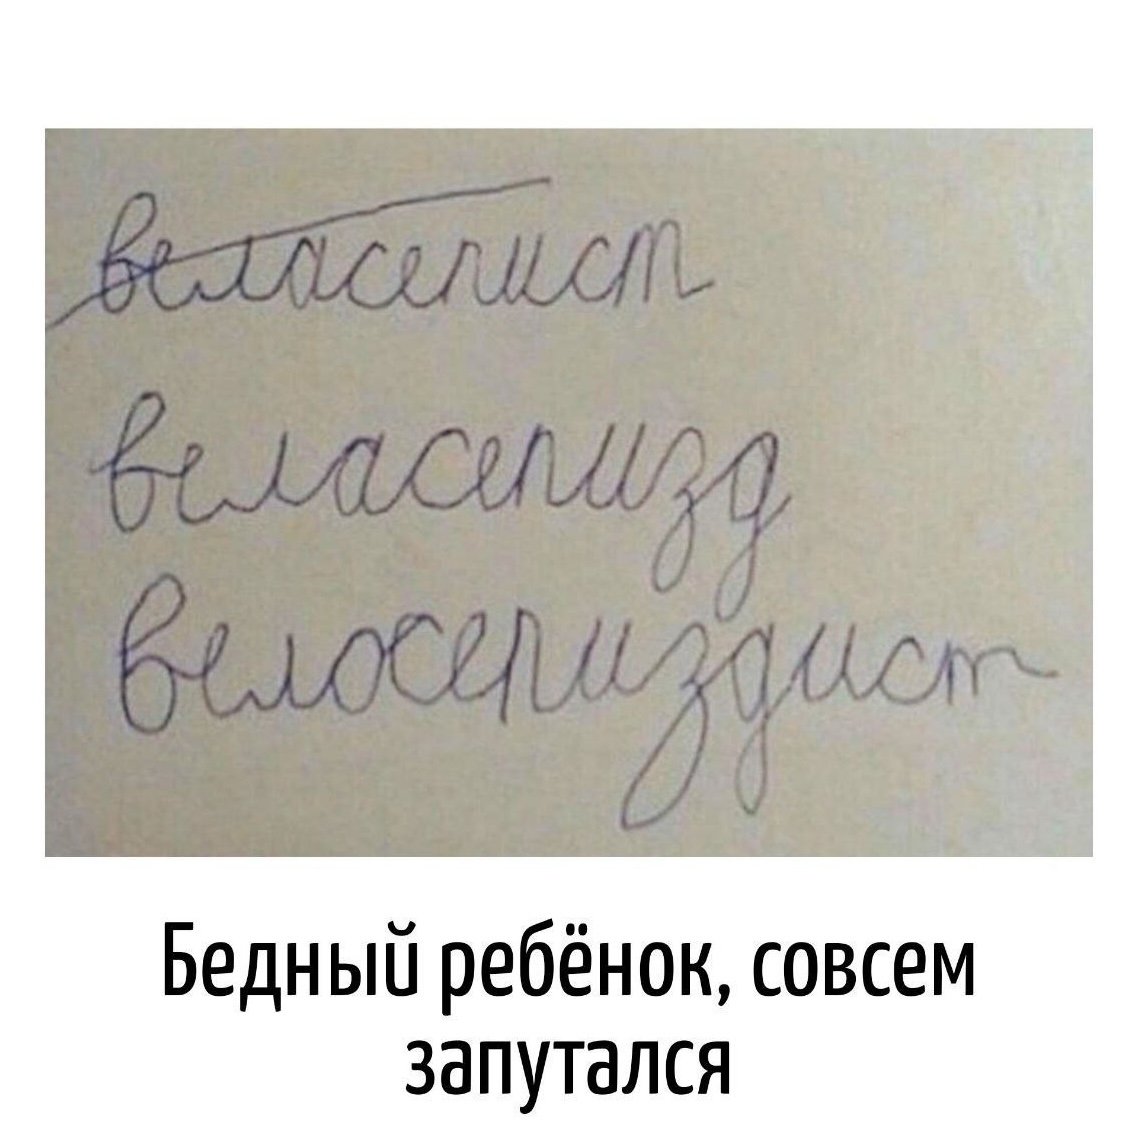 веласепист
веласепизд
велосепиздист
Бедный ребёнок, совсем
запутался